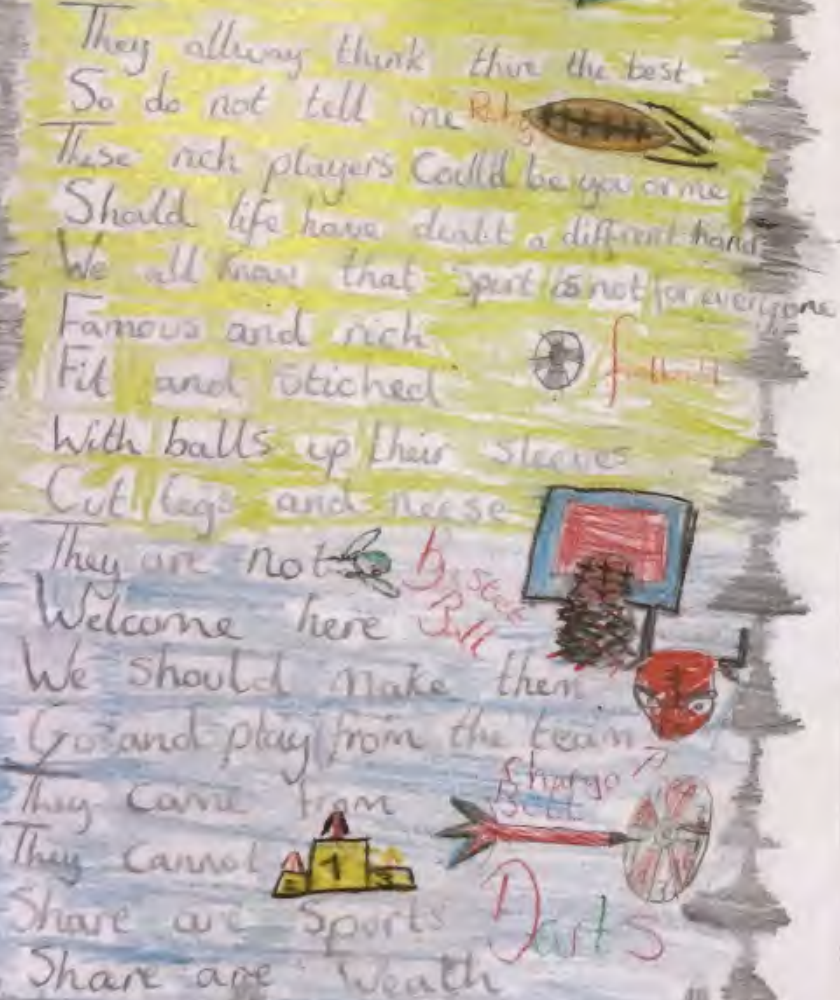 They allway think thire the best.
So do not tell me
Rugby
These rich players Could be you or me
Should life have dealt a different hand
We all know that Sport is not for everyone
Famous and rich
football
Fit and Stiched
With balls up their sleeves
Cut legs and neese
They are not
Basket
Ball
Welcome here
We should make them
Go and play from the team
They came from
They Cannot
1
2
3
Darts
Share are Sports
Share are Wealth